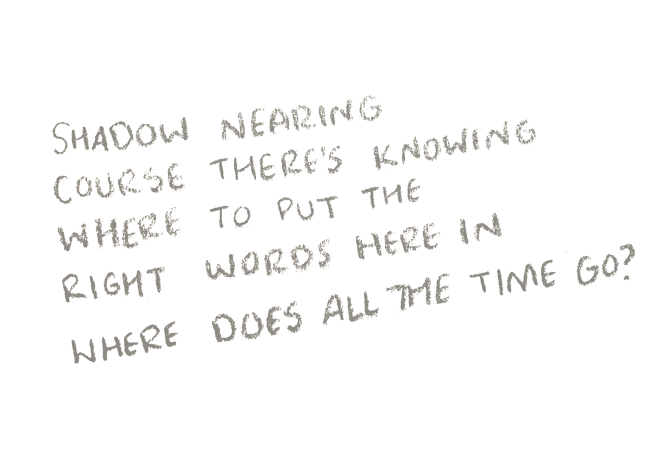 SHADOW NEARING
COURSE THERE'S KNOWING
WHERE TO PUT THE
RIGHT WORDS HERE IN
WHERE DOES ALL THE TIME GO?